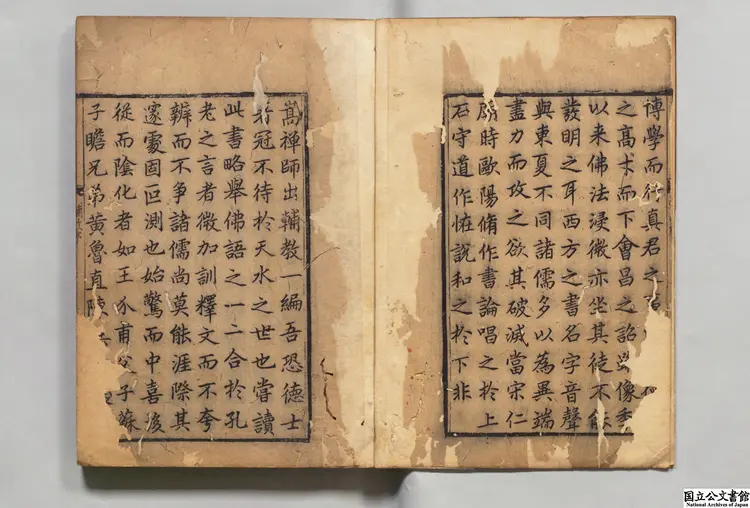 博學而行真君之
之髙才而下會昌之詔像季
以来佛法浸微亦坐其徒不能
發明之耳西方之書名字音聲
與東夏不同諸儒多以為異端
盡力而攻之欲其破滅當宋仁
廟時歐陽脩作書論唱之於上
石守道作恠說和之於下非
嵩禅師出輔教一編吾恐德士
冠不待於天水之世也嘗讀
此書略舉佛語之一二合於孔
老之言者微加訓釋文而不夸
辨而不爭諸儒尚莫能涯際其
邃處固叵測也始驚而中喜後
從而陰化者如王介甫父子蘇
子瞻兄弟黄魯直陳
国立公文書館
National Archives of Japan